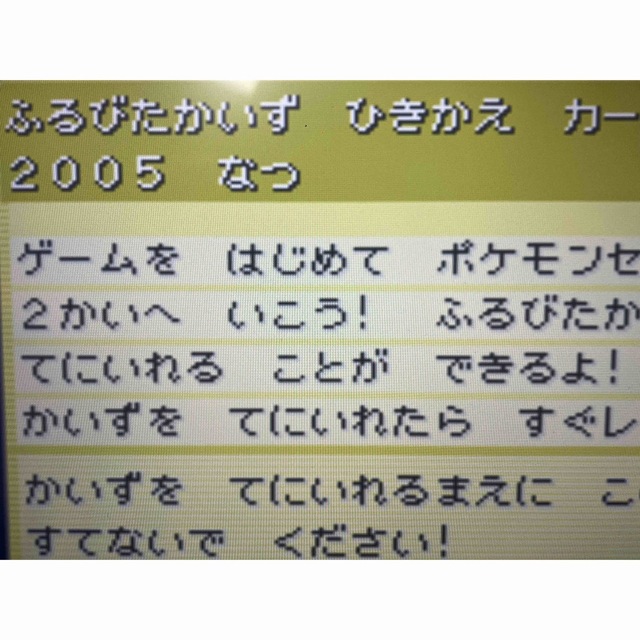 ふるびたかいず　ひきかえ　カー
２００５　なつ
ゲームを　はじめて　ポケモンセ
２かいへ　いこう！　ふるびたか
てにいれる　ことが　できるよ！
かいずを　てにいれたら　すぐレ
かいずを　てにいれるまえに　こ
すてないで　ください！